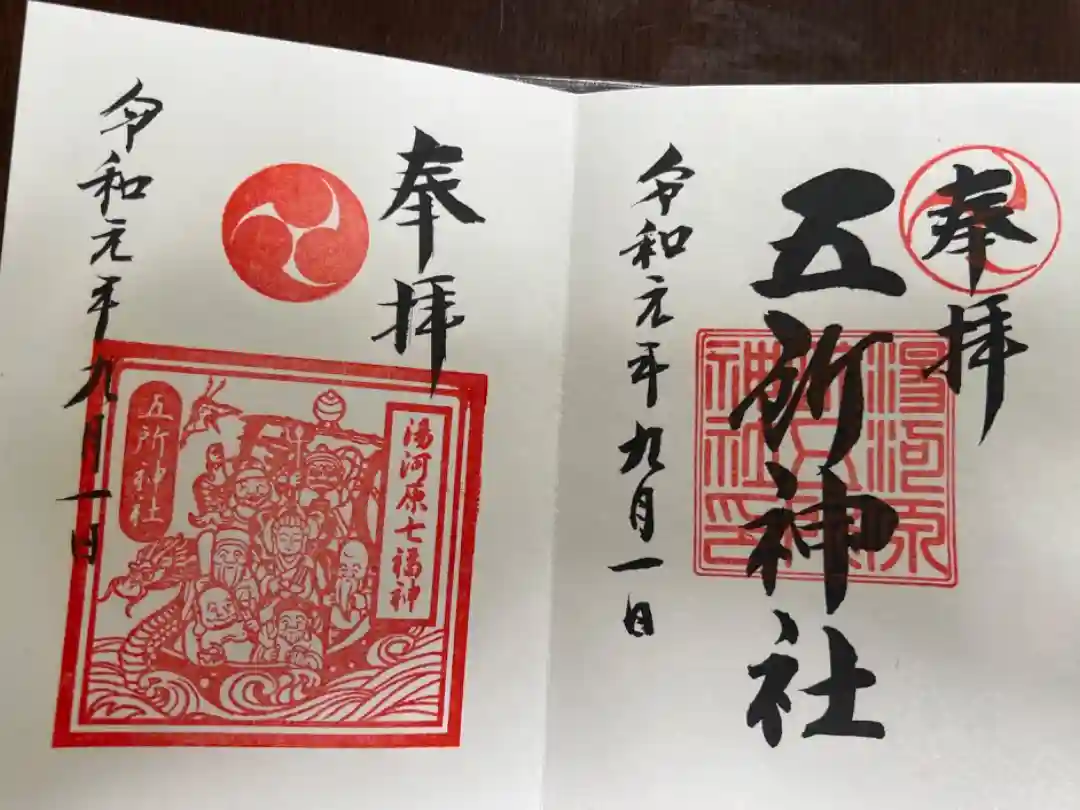 奉拝
五所神社
湯河原
五所
神社印
令和元年九月一日
奉拝
湯河原七福神
五所神社
令和元年九月一日